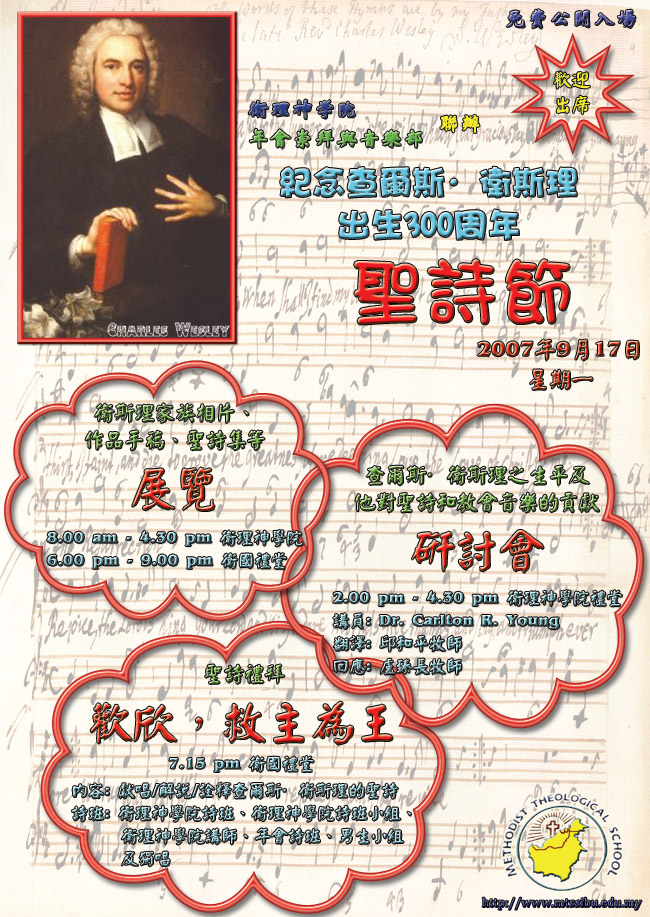 The Words of these Hymns are by my Father
the late Revd. Charles Wesley S. Wesley
免費公開入場
歡迎
出席
衛理神学院
年會崇拜與音樂部
聯辦
紀念查爾斯·衛斯理
出生300周年
聖詩節
2007年9月17日
星期一
CHARLES WESLEY
衛斯理家族相片、
作品手稿、聖詩集等
展覽
8.00 am - 4.30 pm 衛理神學院
6.00 pm - 9.00 pm 衛國禮堂
查爾斯·衛斯理之生平及
他對聖詩和教會音樂的貢獻
研討會
2.00 pm - 4.30 pm 衛理神學院禮堂
講員: Dr. Carlton R. Young
翻譯: 邱和平牧師
回應: 盧臻長牧師
聖詩禮拜
歡欣，救主為王
7.15 pm 衛國禮堂
內容: 獻唱/解説/詮釋查爾斯·衛斯理的聖詩
詩班: 衛理神學院詩班、衛理神學院詩班小組、
衛理神學院講師、年會詩班、男生小組
及獨唱
METHODIST THEOLOGICAL SCHOOL
http://www.mtssibu.edu.my